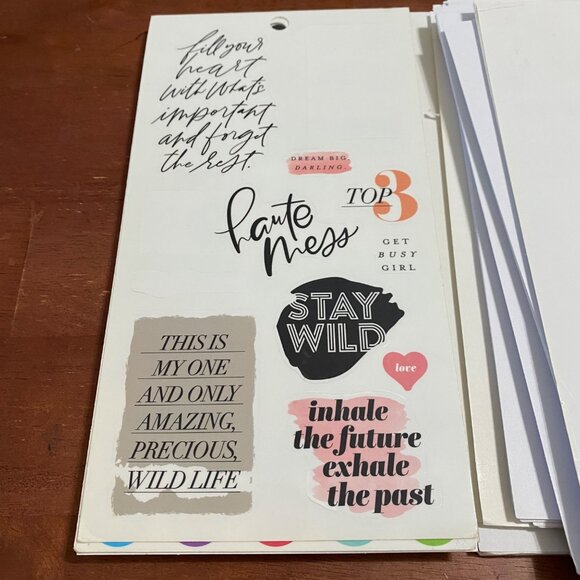 fill your
heart
with what's
important
and forget
the rest.
DREAM BIG,
DARLING.
TOP 3
haute
mess
GET
BUSY
GIRL
STAY
WILD
love
THIS IS
MY ONE
AND ONLY
AMAZING,
PRECIOUS,
WILD LIFE
inhale
the future
exhale
the past